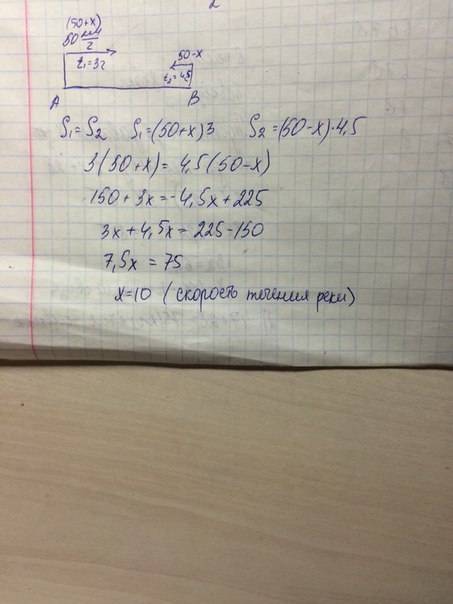 2
(50+x)
50 км/г
50-x
t₁=3г
t₂=4,5
A B
S₁=S₂ S₁=(50+x)3 S₂=(50-x)·4,5
3(50+x)=4,5(50-x)
150+3x=-4,5x+225
3x+4,5x=225-150
7,5x=75
x=10 (скорость течения реки)